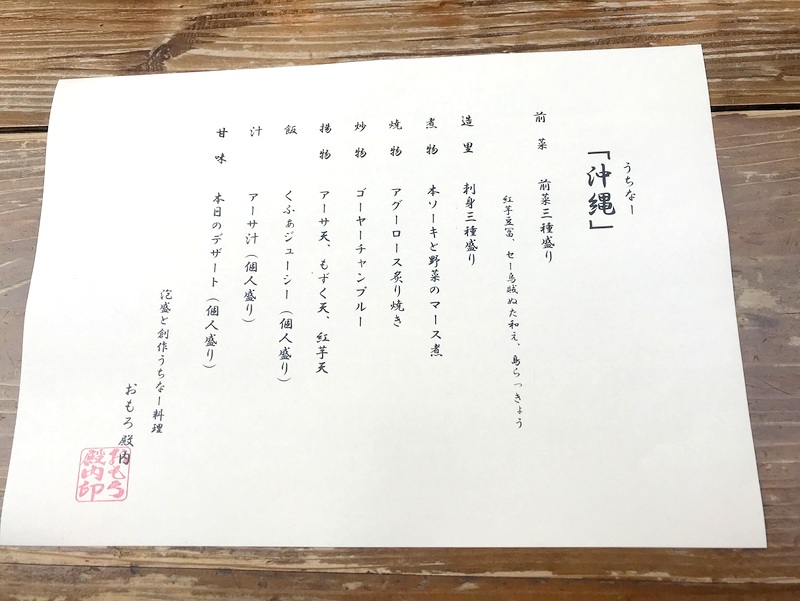 うちなー
「沖縄」
前菜 前菜三種盛り
紅芋豆冨、セー烏賊ぬた和え、島らっきょう
造里 刺身三種盛り
煮物 本ソーキと野菜のマース煮
焼物 アグーロース炙り焼き
炒物 ゴーヤーチャンプルー
揚物 アーサ天、もずく天、紅芋天
飯 くふぁジューシー（個人盛り）
汁 アーサ汁（個人盛り）
甘味 本日のデザート（個人盛り）
泡盛と創作うちなー料理
おもろ殿内
おもろ
殿内印